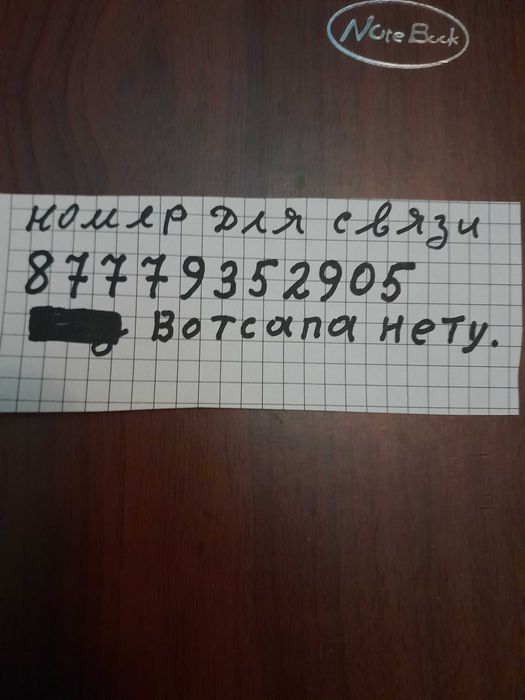 Note Book
номер для связи
87779352905
Вотсапа нету.